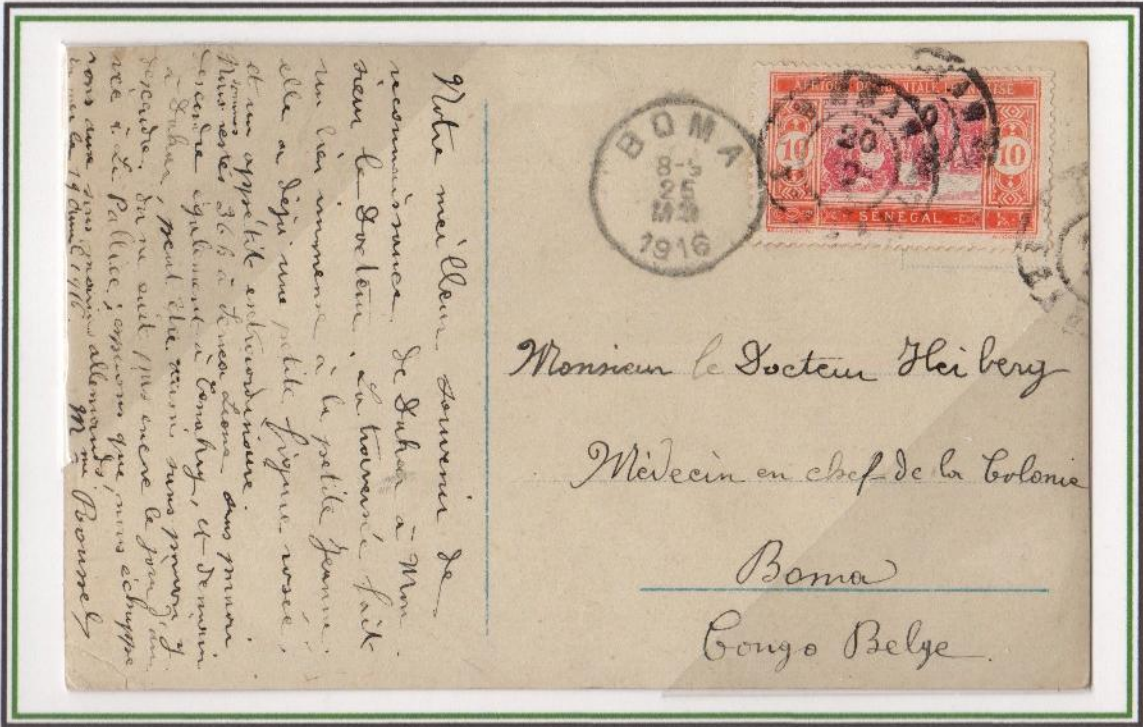 Notre meilleur souvenir de
reconnaissance de Dakar à Mon
sieur le Docteur. La traversée fait
un bien immense à la petite Jeanne;
elle a déjà une petite figure rosée,
et un appétit extraordinaire.
Nous sommes restés 36 h à Sierra Leone sans pouvoir
descendre également à Conakry, et demain
à Dakar, peut être aussi sans pouvoir y
descendre. On ne sait pas encore le jour d'arri
vée à La Pallice; espérons que nous échappe
rons aux sous marins allemands!
en mer le 19 avril 1916.
Mme Roussel
BOMA
8-
25
1916
AFRIQUE OCCIDENTALE FRANÇAISE
10
10
SÉNÉGAL
20
Monsieur le Docteur Heiberg
Médecin en chef de la Colonie
Boma
Congo Belge.